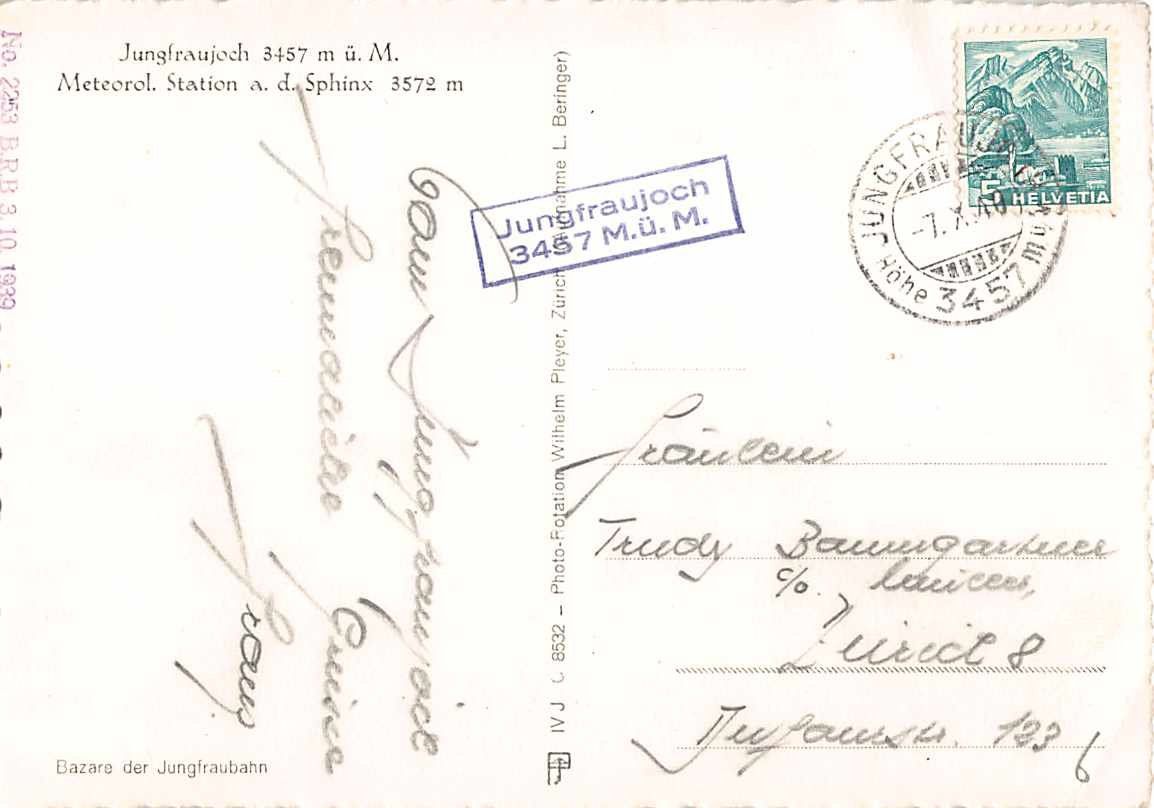 Jungfraujoch 3457 m ü. M.
Meteorol. Station a. d. Sphinx 3572 m
No. 2253 B.R.B. 3. 10. 1939
Vom Jungfraujoch
freundliche Grüsse
Bazare der Jungfraubahn
IVJ C 8532 – Photo-Rotation Wilhelm Pleyer, Zürich (Aufnahme L. Beringer)
Jungfraujoch
3457 M.ü. M.
JUNGFRAUJOCH
-7. X. 40
Höhe 3457 m
5 HELVETIA
Fräulein
Trudy Baumgartner
c/o
Zürich 8
123